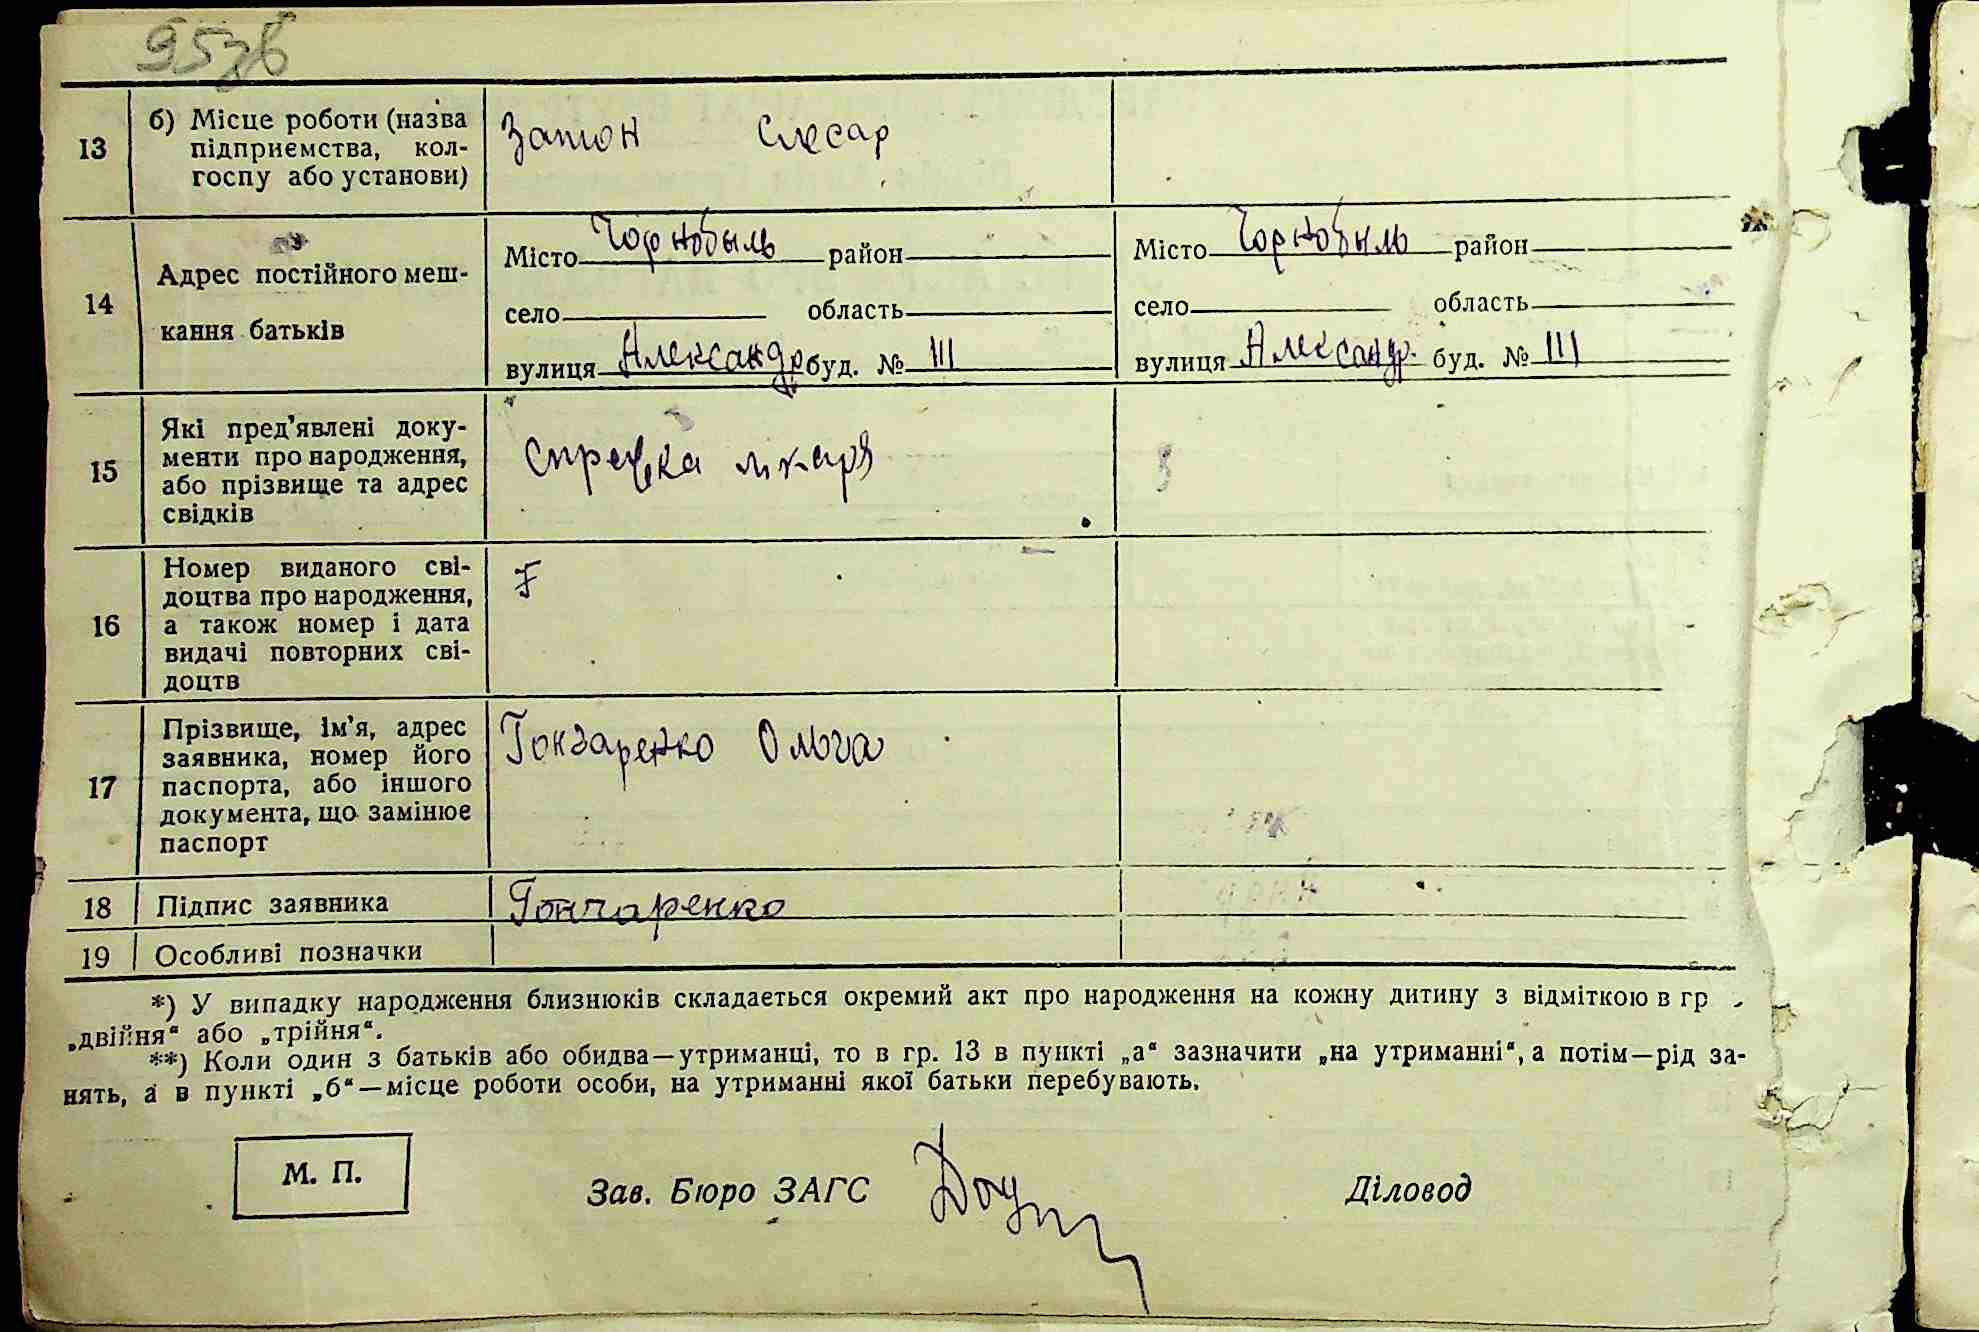 95зв
13
б) Місце роботи (назва
підприємства, кол-
госпу або установи)
Затон Слесар
14
Адрес постійного меш-
кання батьків
Місто Чорнобыль район
село область
вулиця Александр буд. № 111
Місто Чорнобыль район
село область
вулиця Александр. буд. № 111
15
Які пред’явлені доку-
менти про народження,
або прізвище та адрес
свідків
Справка лікаря
16
Номер виданого сві-
доцтва про народження,
а також номер і дата
видачі повторних сві-
доцтв
17
Прізвище, ім’я, адрес
заявника, номер його
паспорта, або іншого
документа, що замінює
паспорт
Гончаренко Ольга
18
Підпис заявника
Гончаренко
19
Особливі позначки
*) У випадку народження близнюків складається окремий акт про народження на кожну дитину з відміткою в гр
„двійня“ або „трійня“.
**) Коли один з батьків або обидва—утриманці, то в гр. 13 в пункті „а“ зазначити „на утриманні“, а потім—рід за-
нять, а в пункті „б“—місце роботи особи, на утриманні якої батьки перебувають.
М. П.
Зав. Бюро ЗАГС
Діловод